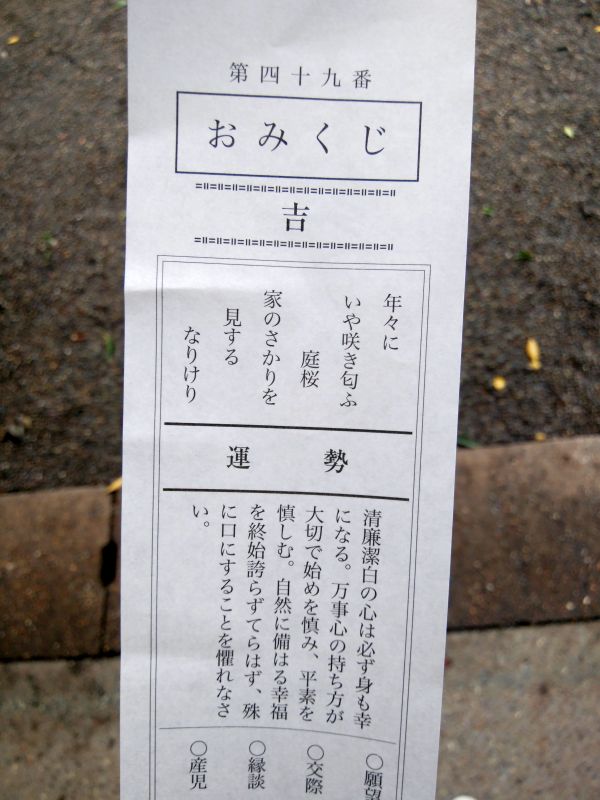 第四十九番
おみくじ
吉
年々に
いや咲き匂ふ
庭桜
家のさかりを
見する
なりけり
運勢
清廉潔白の心は必ず身も幸
になる。万事心の持ち方が
大切で始めを慎み、平素を
慎しむ。自然に備はる幸福
を終始誇らずてらはず、殊
に口にすることを懼れなさ
い。
○願望
○交際
○縁談
○産児